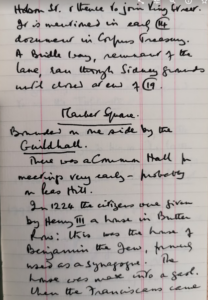 Hobson St. & thence to join King Street.
It is mentioned in early 14
document in Corpus Treasury.
A Bridle Way, remnant of the
lane, ran through Sidney grounds
until closed at end of 19.
Market Square.
Bounded on one side by the
Guildhall.
There was a Common Hall for
meetings very early - probably
on Peas Hill.
In 1224 the citizens were given
by Henry III a house in Butter
Row: this was the house of
Benjamin the Jew, formerly
used as a synagogue. The
house was made into a gaol.
When the Franciscans came